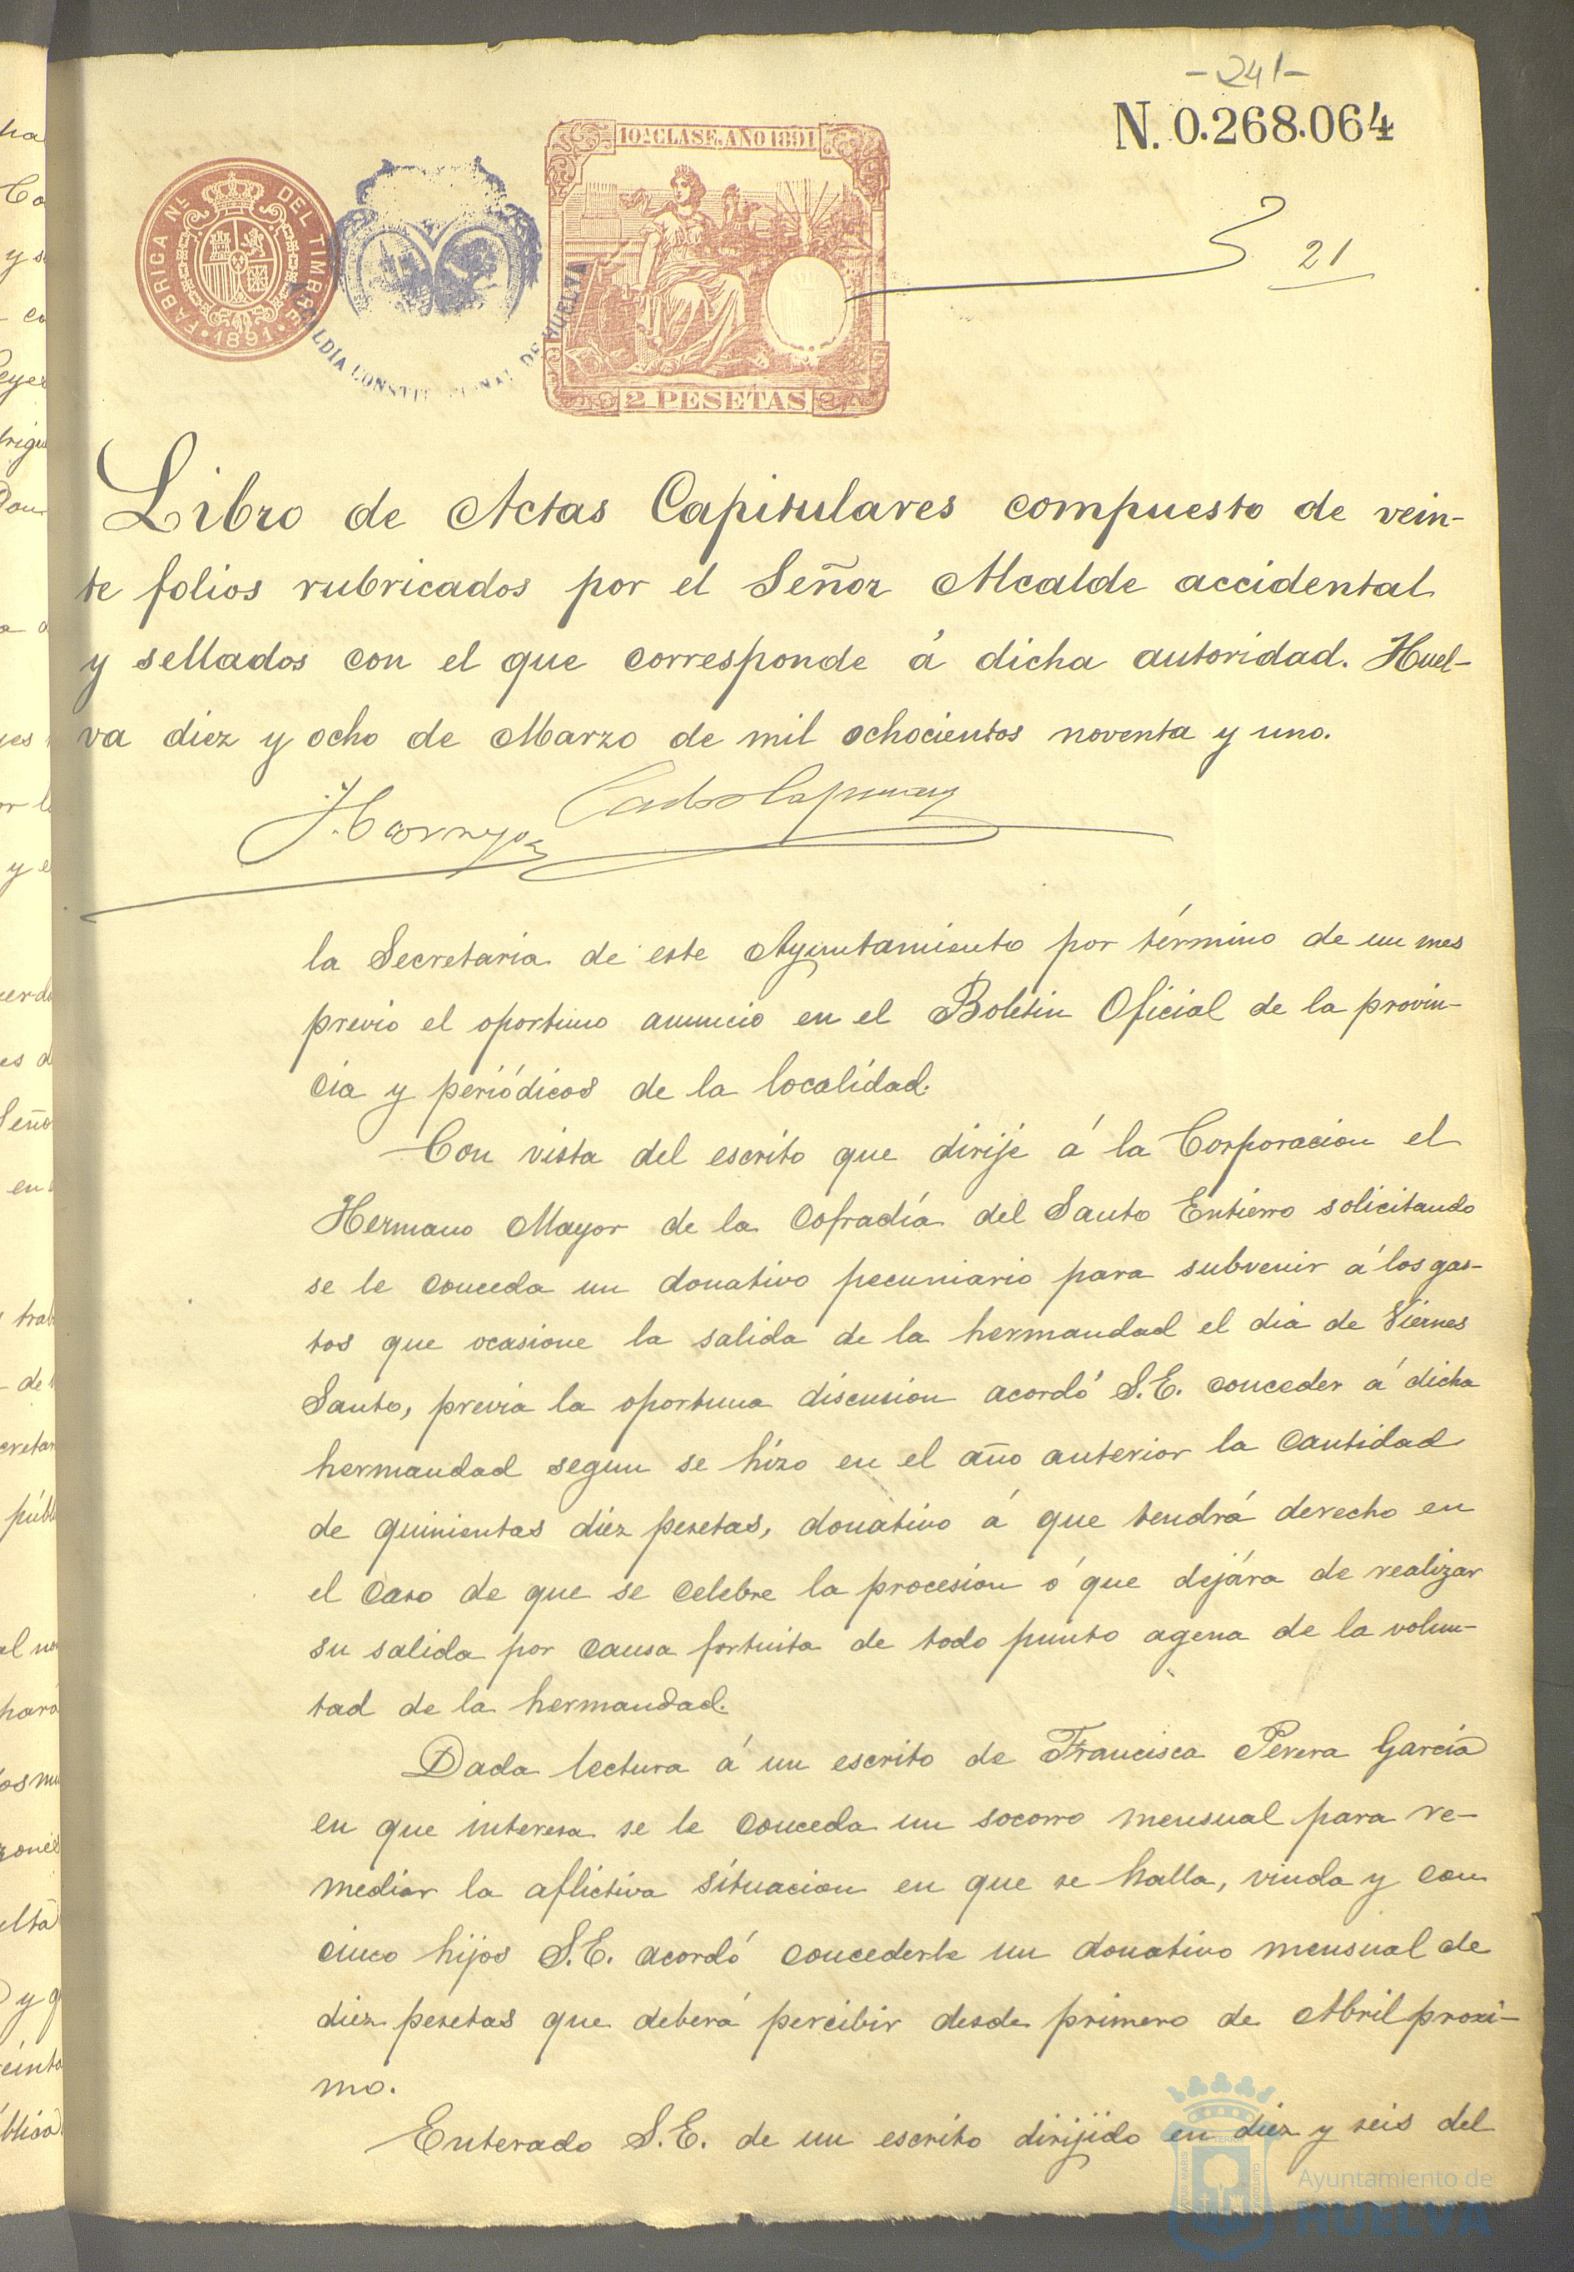 -241-
N. 0.268.064
10ª CLASE. AÑO 1891
FABRICA NL. DEL TIMBRE
1891
ALCALDÍA CONSTITUCIONAL DE HUELVA
2 PESETAS
21
Libro de Actas Capitulares compuesto de vein-
te folios rubricados por el Señor Alcalde accidental
y sellados con el que corresponde á dicha autoridad. Huel-
va diez y ocho de Marzo de mil ochocientos noventa y uno.
la Secretaría de este Ayuntamiento por término de un mes
previo el oportuno anuncio en el Boletin Oficial de la provin-
cia y periódicos de la localidad.
Con vista del escrito que dirije á la Corporacion el
Hermano Mayor de la Cofradía del Santo Entierro solicitando
se le conceda un donativo pecuniario para subvenir á los gas-
tos que ocasione la salida de la hermandad el dia de Viernes
Santo, previa la oportuna discusion acordó S.E. conceder á dicha
hermandad segun se hizo en el año anterior la cantidad
de quinientas diez pesetas, donativo á que tendrá derecho en
el caso de que se celebre la procesion ó que dejára de realizar
su salida por causa fortuita de todo punto agena de la volun-
tad de la hermandad.
Dada lectura á un escrito de Francisca Perera García
en que interesa se le conceda un socorro mensual para re-
mediar la aflictiva situacion en que se halla, viuda y con
cinco hijos S.E. acordó concederle un donativo mensual de
diez pesetas que deberá percibir desde primero de Abril proxi-
mo.
Enterado S.E. de un escrito dirijido en diez y seis del
Ayuntamiento de
HUELVA